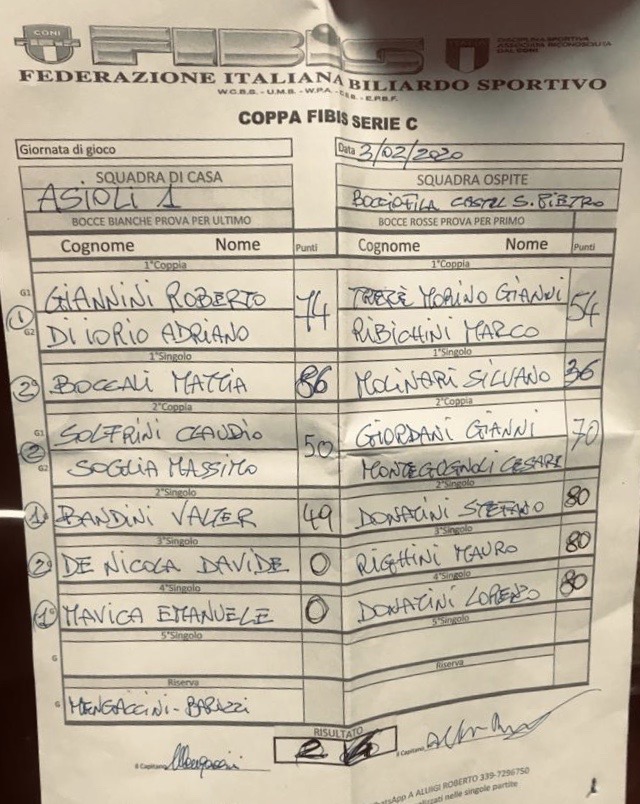 CONI FIBiS DISCIPLINA SPORTIVA
ASSOCIATA RICONOSCIUTA
DAL CONI
FEDERAZIONE ITALIANA BILIARDO SPORTIVO
W.C.B.S. - U.M.B. - W.P.A. - C.E.B. - E.P.B.F.
COPPA FIBIS SERIE C
Giornata di gioco Data 3/02/2020
SQUADRA DI CASA SQUADRA OSPITE
ASIOLI 1 BOCCIOFILA CASTEL S. PIETRO
BOCCE BIANCHE PROVA PER ULTIMO BOCCE ROSSE PROVA PER PRIMO
Cognome Nome Punti Cognome Nome Punti
1°Coppia 1°Coppia
G1 GIANNINI ROBERTO 74 TRERÈ MORINO GIANNI 54
1
G2 DI IORIO ADRIANO RIBICHINI MARCO
1°Singolo 1°Singolo
2° BOCCALI MATTIA 86 MOLINARI SILVANO 36
2°Coppia 2°Coppia
G1 SOLFRINI CLAUDIO 50 GIORDANI GIANNI 70
2
G2 SOGLIA MASSIMO CESARE
2°Singolo 2°Singolo
1° BANDINI VALTER 49 DONATINI STEFANO 80
3°Singolo 3°Singolo
2° DE NICOLA DAVIDE 0 RIGHINI MAURO 80
4°Singolo 4°Singolo
1° MAVICA EMANUELE 0 DONATINI LORENZO 80
5°Singolo 5°Singolo
G
Riserva Riserva
G MENGACCINI - BARUZZI
RISULTATO
2 4
Il Capitano Il Capitano
WhatsApp A ALUIGI ROBERTO 339-7296750
nelle singole partite